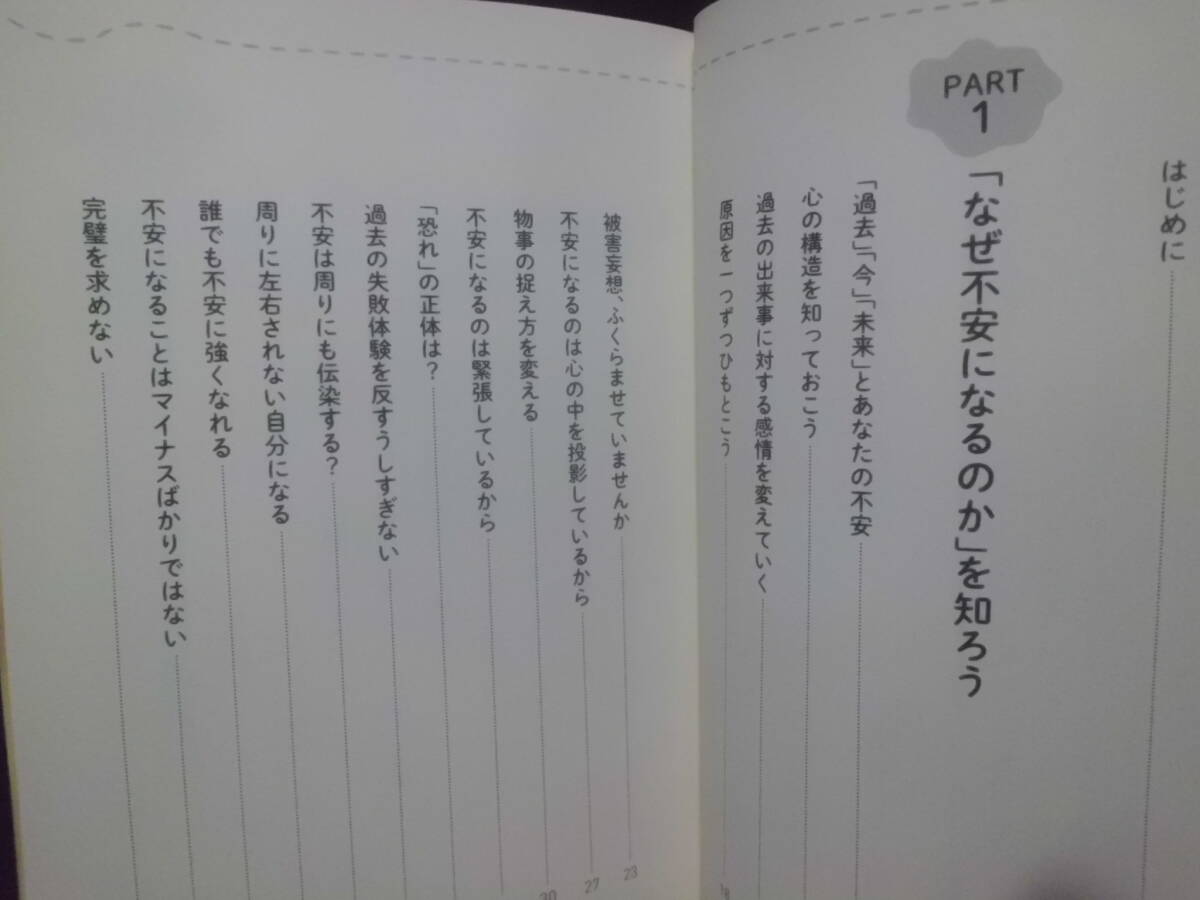 はじめに
PART
1
「なぜ不安になるのか」を知ろう
「過去」「今」「未来」とあなたの不安
心の構造を知っておこう
過去の出来事に対する感情を変えていく
原因を一つずつひもとこう
被害妄想、ふくらませていませんか 23
不安になるのは心の中を投影しているから 27
物事の捉え方を変える
不安になるのは緊張しているから
「恐れ」の正体は？
過去の失敗体験を反すうしすぎない
不安は周りにも伝染する？
周りに左右されない自分になる
誰でも不安に強くなれる
不安になることはマイナスばかりではない
完璧を求めない